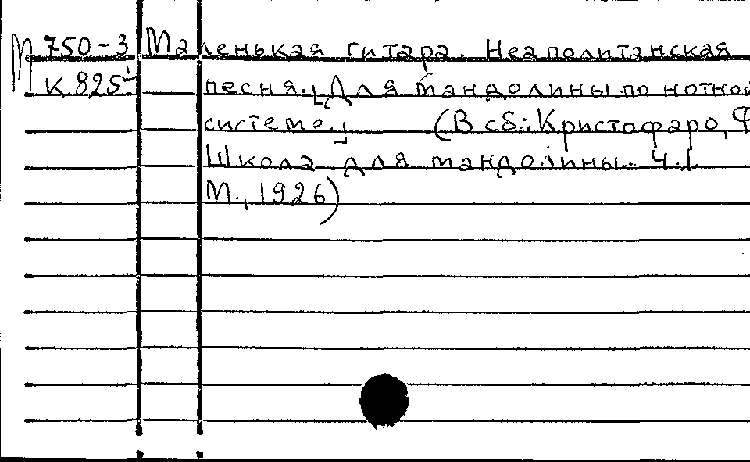 М 750-3 Маленькая гитара. Неаполитанская
К 825 песня. [Для мандолины по нотной
системе.] (В сб.: Кристофаро, Ф.
Школа для мандолины. Ч.I.
М., 1926)